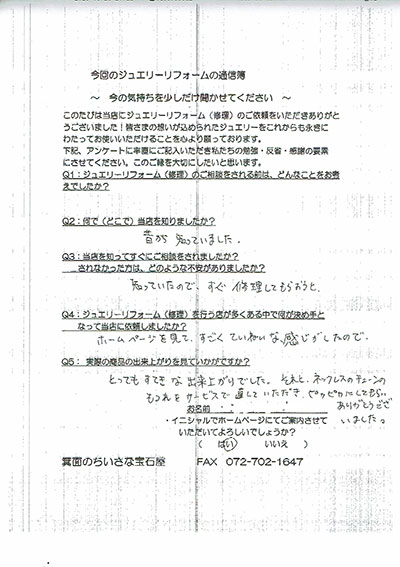 今回のジュエリーリフォームの通信簿
～ 今の気持ちを少しだけ聞かせてください ～
このたびは当店にジュエリーリフォーム（修理）のご依頼をいただきありがと
うございました！皆さまの想いが込められたジュエリーをこれからも永きに
わたってお使いいただけることを心より願っております。
下記、アンケートに率直にご記入いただき私たちの勉強・反省・感謝の要素
にさせてください。このご縁を大切にしたいと思います。
Q1：ジュエリーリフォーム（修理）のご相談をされる前は、どんなことをお考
えでしたか？
Q2：何で（どこで）当店を知りましたか？
昔から 知っていました。
Q3：当店を知ってすぐにご相談をされましたか？
されなかった方は、どのような不安がありましたか？
知っていたので、すぐ 修理してもらおうと、
Q4：ジュエリーリフォーム（修理）を行う店が多くある中で何が決め手と
なって当店に依頼しましたか？
ホームページを見て、すごく ていねいな 感じがしたので、
Q5： 実際の商品の出来上がりを見ていかがですか？
とってもすてきな 出来上がりでした。それと、ネックレスのチェーンの
もつれをサービスで直していただき、ピッピカにしてもらい、
ありがとうござ
いました。
お名前
・イニシャルでホームページにてご案内させて
いただいてよろしいでしょうか？
（ はい いいえ ）
箕面のちいさな宝石屋 FAX 072-702-1647